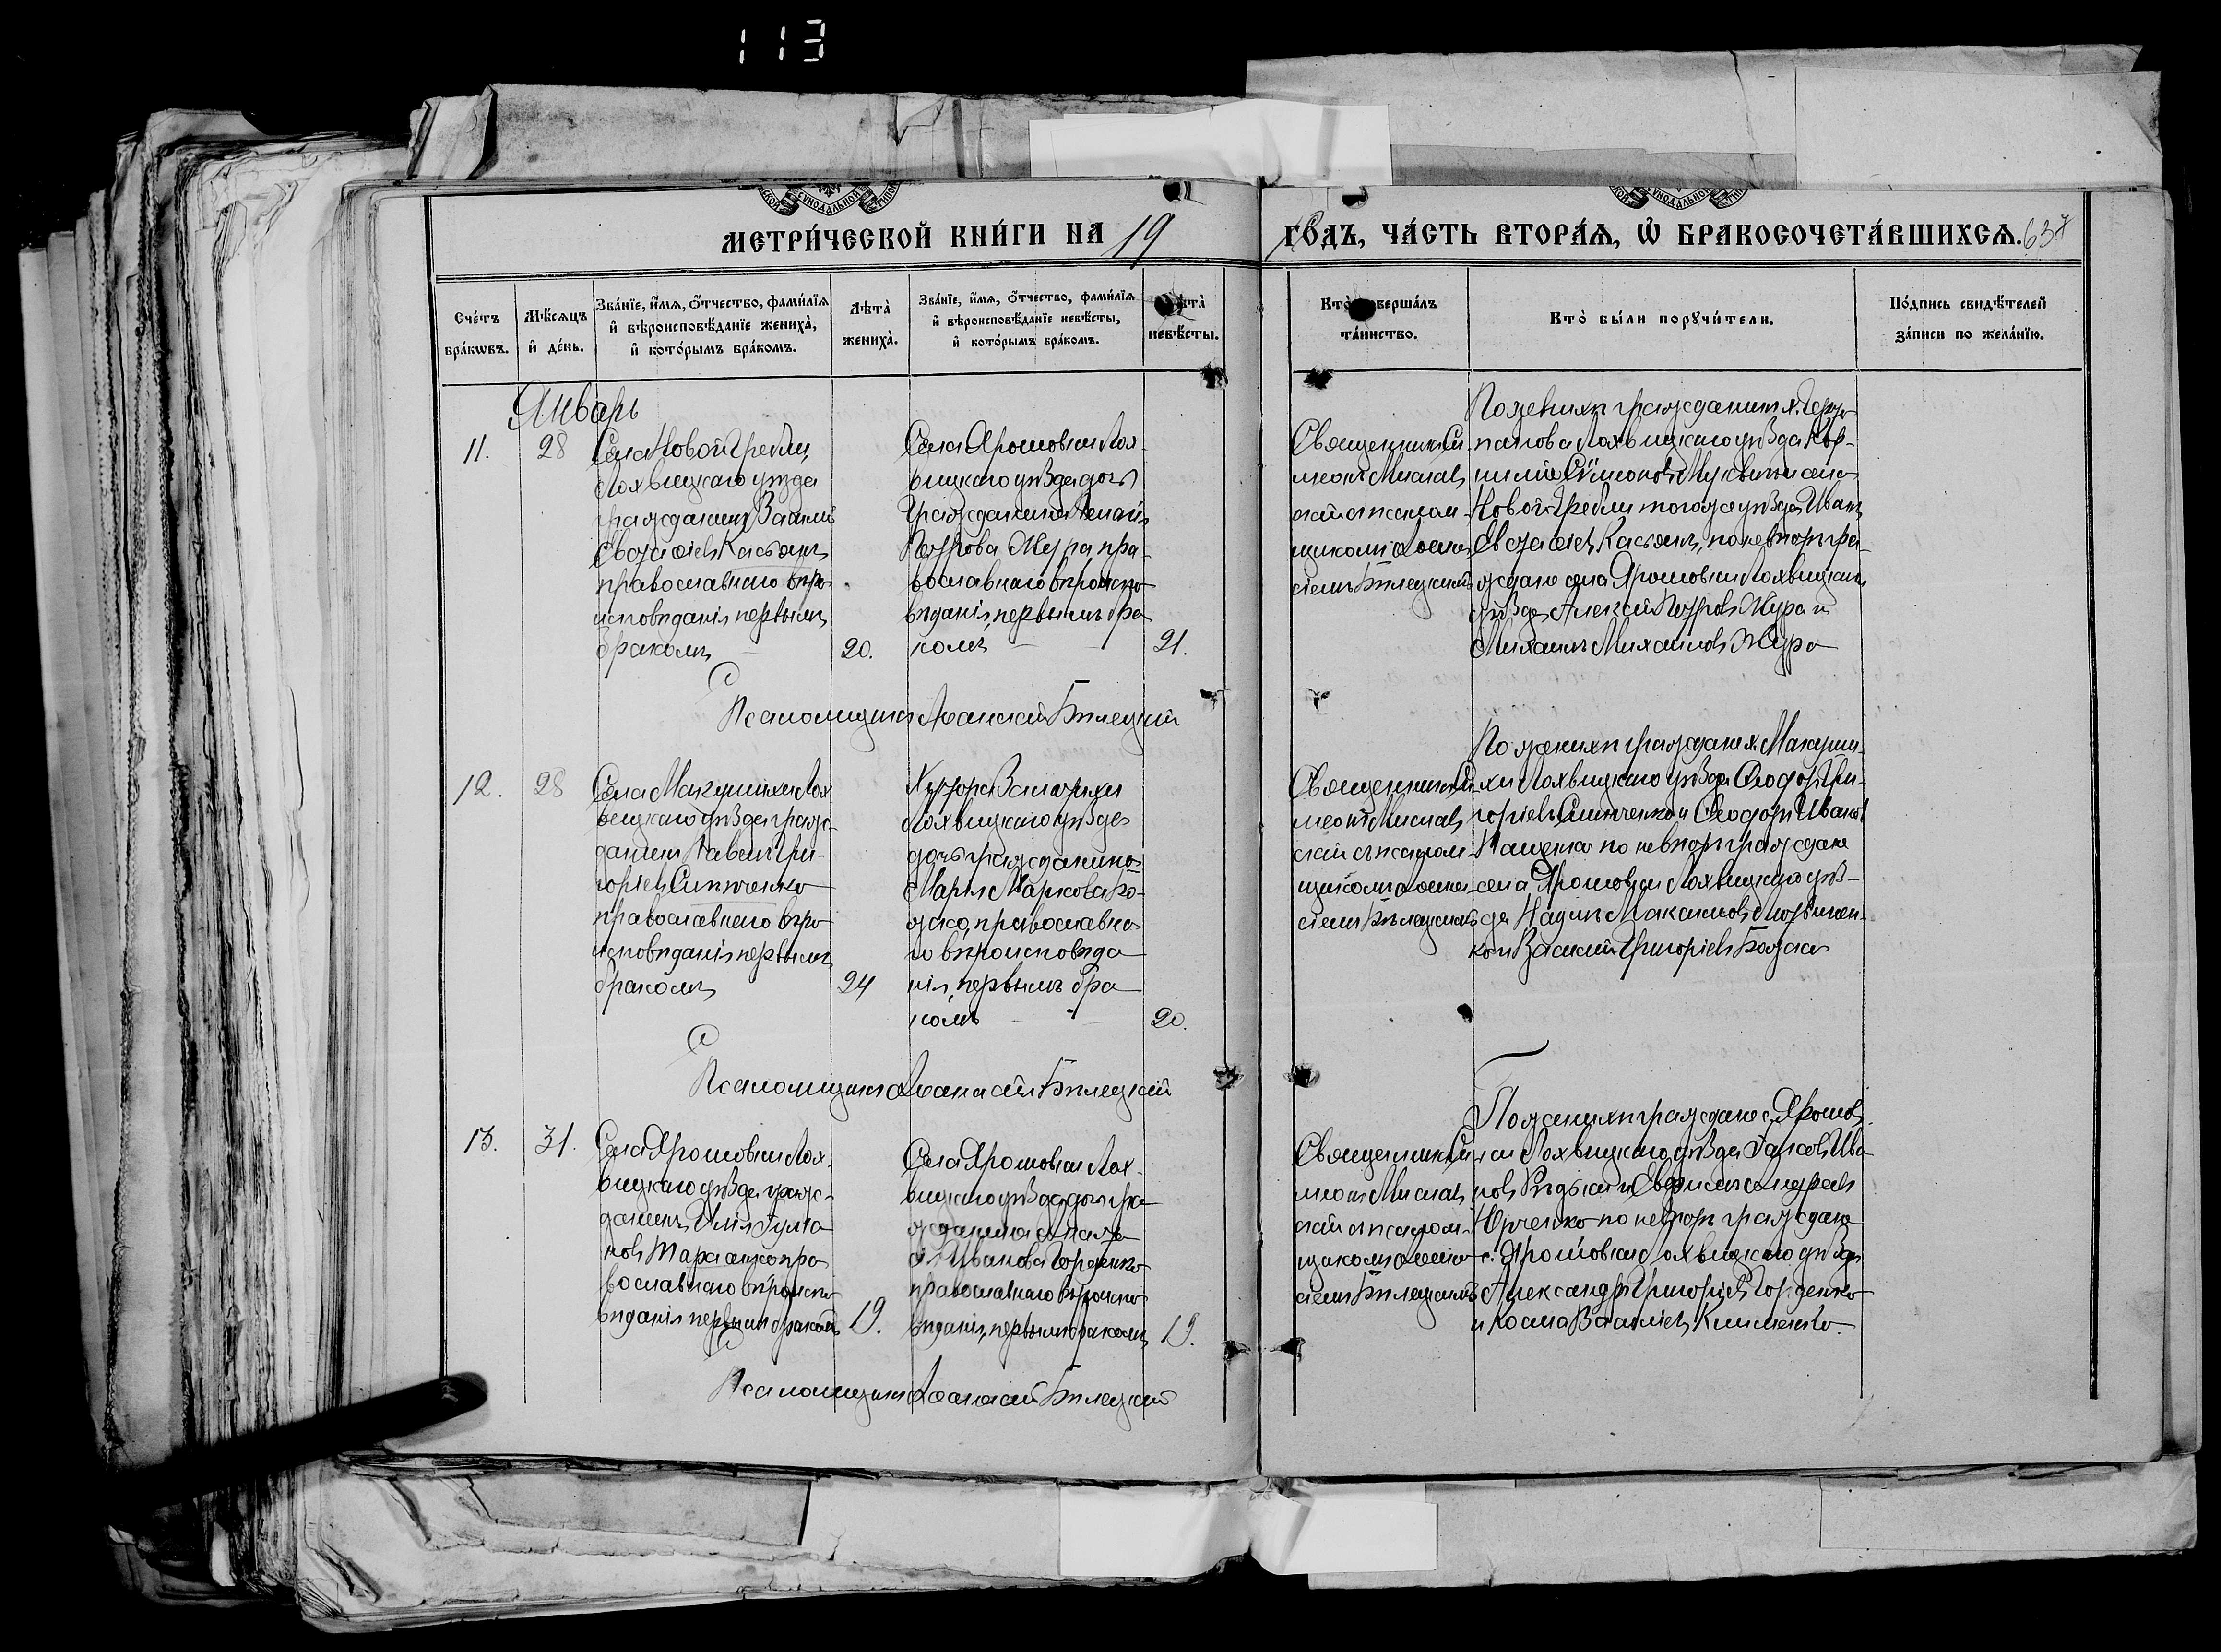 113
МЕТРИ́ЧЕСКОЙ КНИ́ГИ НА 19
ГО́ДЪ, ЧА́СТЬ ВТОРА́Я, Ѡ БРАКОСОЧЕТА́ВШИХСЯ. 637
Сче́тъ бра́кѡвъ.
Мѣ́сяцъ и҆ де́нь.
Зва́нїе, и҆́мя, ѻ҆́тчество, фами́лїя
и҆ вѣроисповѣ́данїе жениха̀,
и҆ кото́рымъ бра́комъ.
Лѣта̀ жениха̀.
Зва́нїе, и҆́мя, ѻ҆́тчество, фами́лїя
и҆ вѣроисповѣ́данїе невѣ́сты,
и҆ кото́рымъ бра́комъ.
невѣ́сты.
Кто̀ вершáлъ
та́инство.
Кто̀ бы́ли порꙋчи́тели.
По́дпись свидѣ́телей
за́писи по жела́нїю.
Январь
11.
28
Села Новой Гребли
Лохвицкаго уѣзда
гражданинъ Василій
Евстафіевъ Касьянъ
православнаго вѣро-
исповѣданія первымъ
бракомъ
20.
Села Ярошовки Лох-
вицкаго уѣзда дочь
Гражданина
Петрова Жура пра-
вославнаго вѣроиспо-
вѣданія, первымъ бра-
комъ
21.
Священникъ Си-
меонъ
скій съ псалом-
щикомъ Аѳана-
сіемъ Билецкимъ
По женихѣ гражданинъ х.
Лохвицкаго уѣзда Кор-
нилій Симоновъ села
Новой Гребли того же уѣзда Иванъ
Евстафіевъ Касьянъ, по невѣстѣ гра-
ждане села Ярошовки Лохвицкаго
уѣзда Алексѣй Петровъ Жура и
Михаилъ Михаиловъ Жура
Псаломщикъ Аѳанасій Билецкій
12.
28
Села Макушихи Лох-
вицкаго уѣзда граж-
данинъ Павелъ Гри-
горіевъ
православнаго вѣро-
исповѣданія первымъ
бракомъ
24
Хутора
Лохвицкаго уѣзда
дочь гражданина
Марія Маркова Бо-
жко, православна-
го вѣроисповѣда-
нія, первымъ бра-
комъ
20.
Священникъ Си-
меонъ
скій съ псалом-
щикомъ Аѳана-
сіемъ Билецкимъ
По женихѣ граждане х. Макуши-
хи Лохвицкаго уѣзда Ѳеодоръ Гри-
горіевъ и Ѳеодоръ Ивановъ
по невѣстѣ граждане
села Ярошовки Лохвицкаго уѣз-
да Максимовъ
ко и Василій Григоріевъ Божко
Псаломщикъ Аѳанасій Билецкій
13.
31.
Села Ярошовки Лох-
вицкаго уѣзда граж-
данинъ Илія
новъ Тарасенко пра-
вославнаго вѣроиспо-
вѣданія первымъ бракомъ
19.
Села Ярошовки Лох-
вицкаго уѣзда дочь гра-
жданина
Иванова Гордѣенко
православнаго вѣроиспо-
вѣданія, первымъ бракомъ
19.
Священникъ Си-
меонъ
скій съ псалом-
щикомъ Аѳана-
сіемъ Билецкимъ
По женихѣ граждане с. Ярошов-
ки Лохвицкаго уѣзда Іаковъ Ива-
новъ и
Юрченко по невѣстѣ граждане
с. Ярошовки Лохвицкаго уѣзда
Александръ Григоріевъ Гордѣенко
и Косма Василіевъ Клименко.
Псаломщикъ Аѳанасій Билецкій